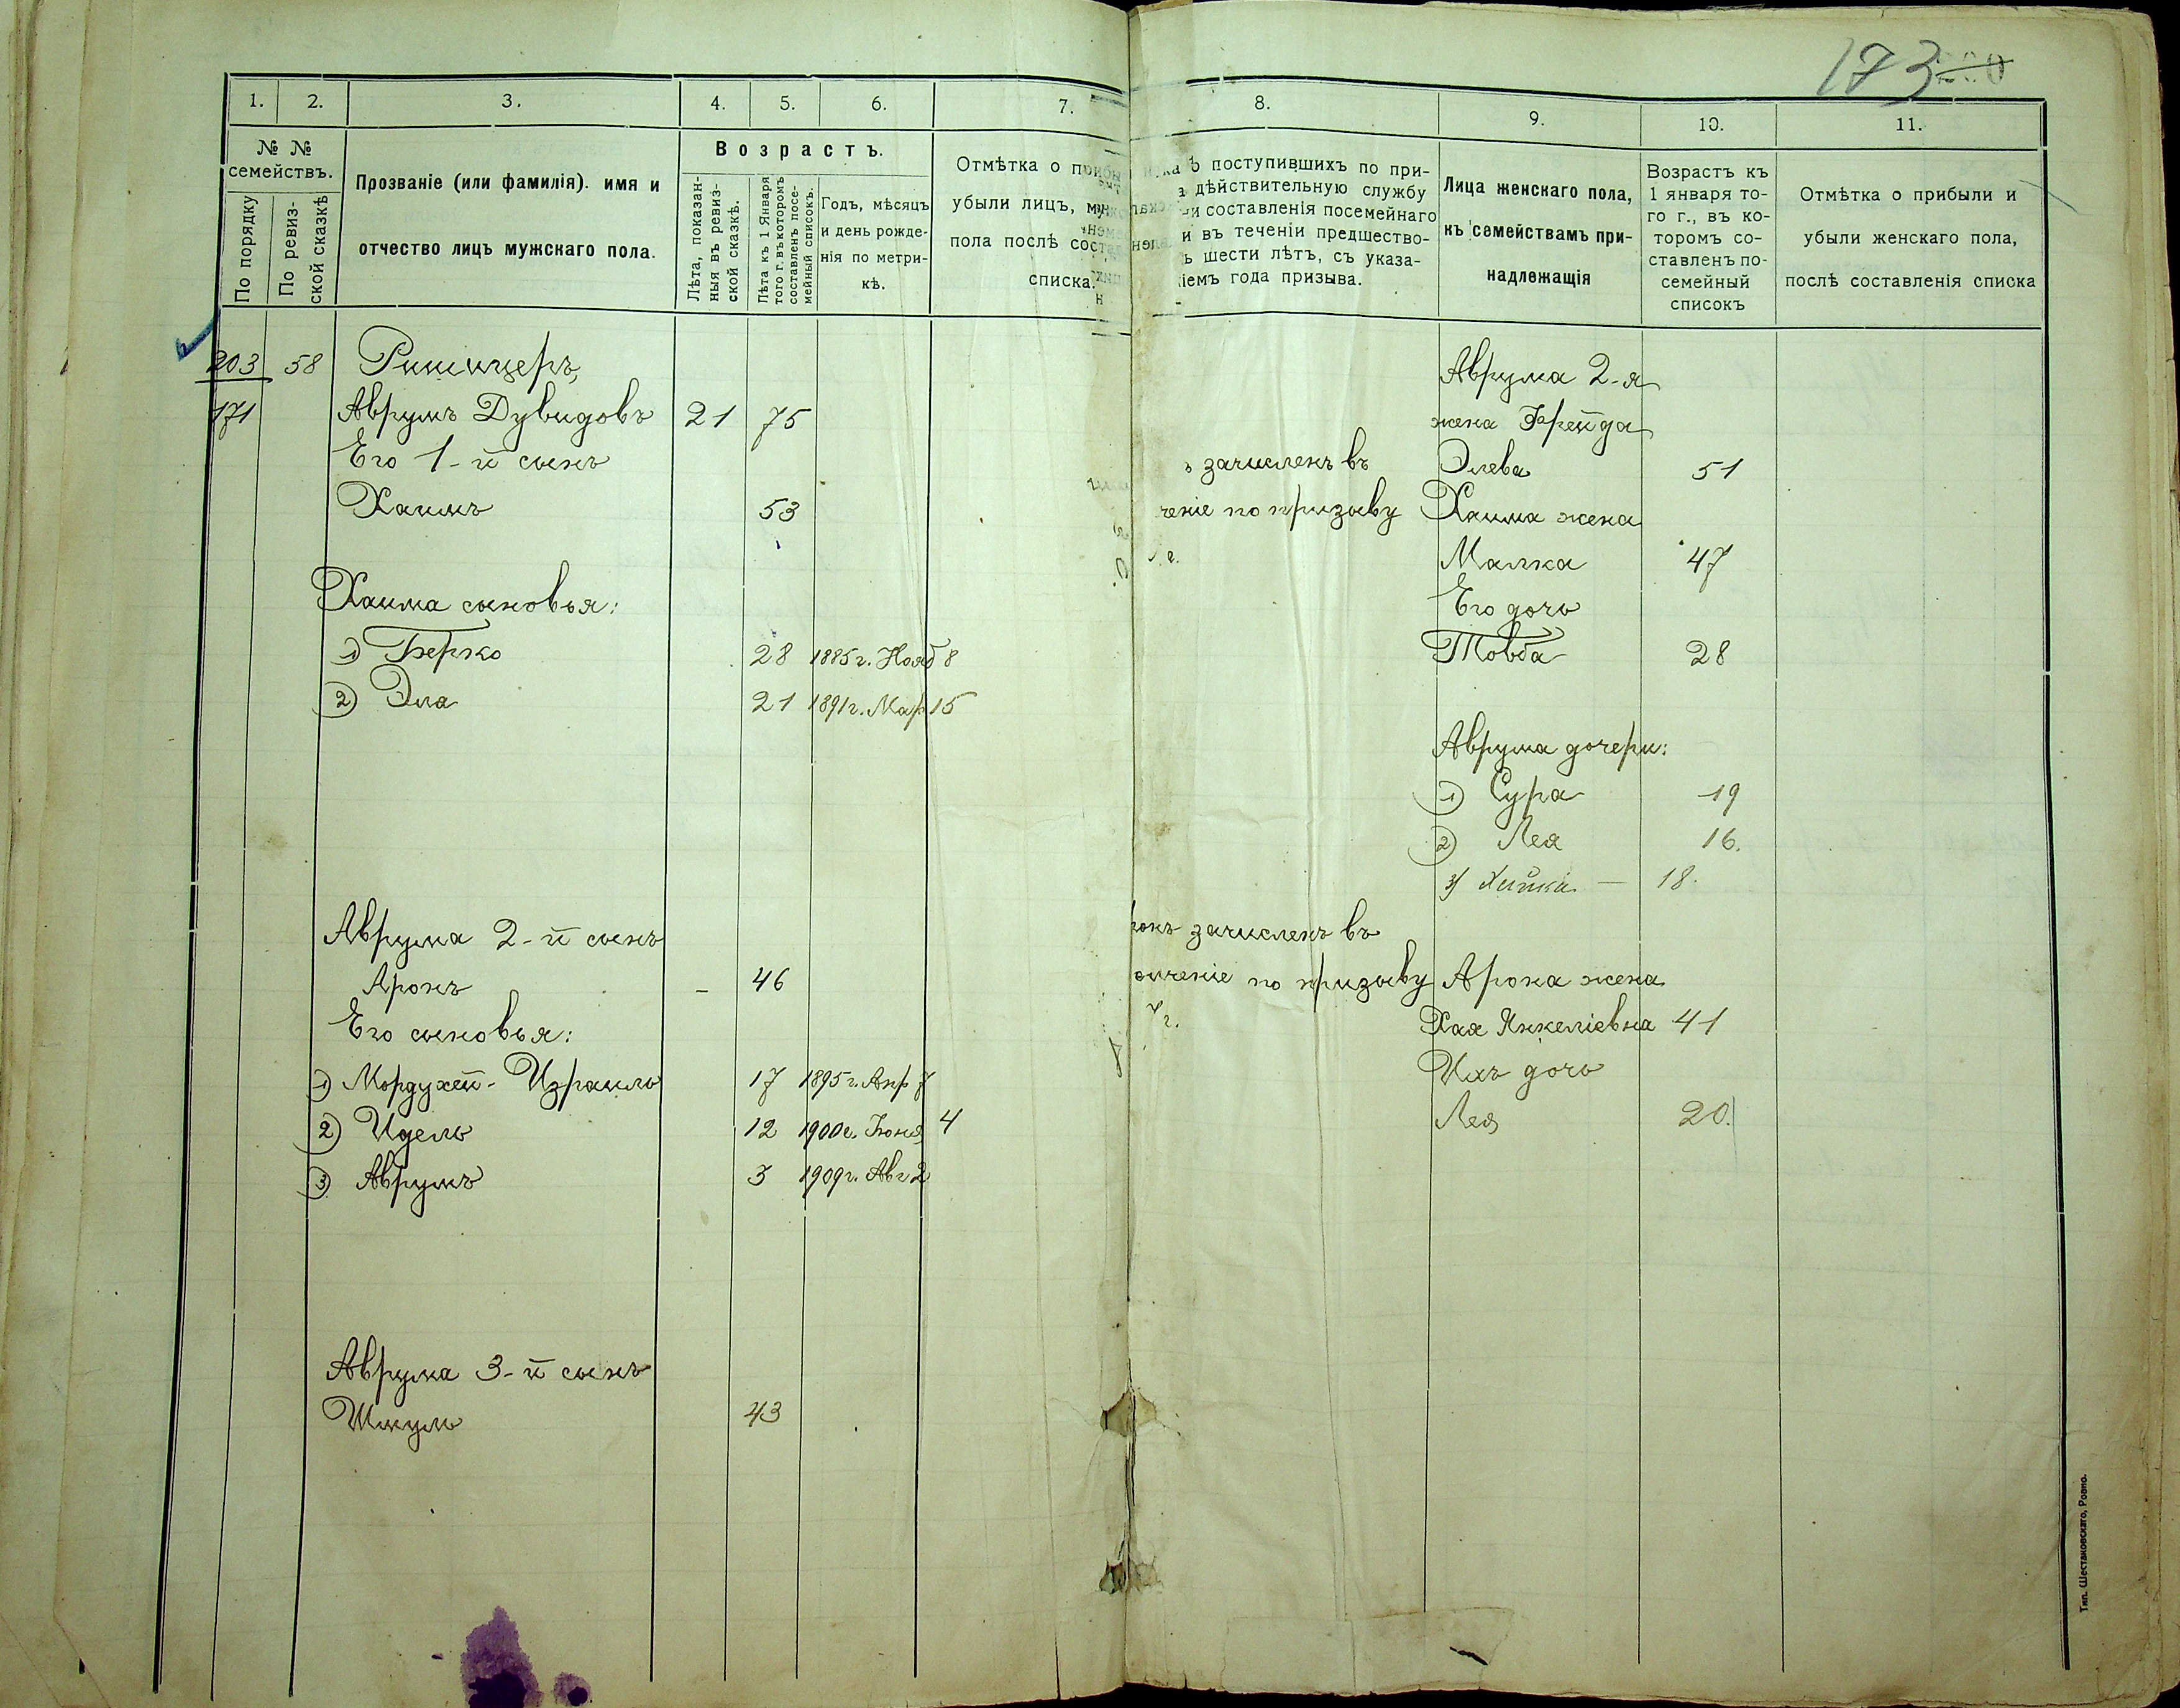 173
1.
2.
3.
4.
5.
6.
7.
№ №
семействъ.
По порядку
По ревиз-
ской сказкѣ
Прозваніе (или фамилія). имя и
отчество лицъ мужскаго пола.
Возрастъ.
Лѣта, показан-
ныя въ ревиз-
ской сказкѣ.
Лѣта къ 1 Января
того г. въ которомъ
составленъ посе-
мейный списокъ.
Годъ, мѣсяцъ
и день рожде-
нія по метри-
кѣ.
Отмѣтка о прибы
убыли лицъ, муж
пола послѣ состав
списка.
203
171
58
Авրумъ Дувидовъ 21 75
Его 1-й сынъ
Хаимъ 53
Хаима сыновья:
1) Берко 28 1885 г. Нояб 8
2) Эла 21 1891 г. Мар 15
Аврума 2-й сынъ
Аронъ - 46
Его сыновья:
1) Мордухей-Израиль 17 1895 г. Апр 7
2) Идель 12 1900 г. Іюня 4
3) Аврумъ 3 1909 г. Авг 2
Аврума 3-й сынъ
Шмуль 43
8.
9.
10.
11.
ѣ поступившихъ по при-
а дѣйствительную службу
и составленія посемейнаго
и въ теченіи предшество-
ь шести лѣтъ, съ указа-
іемъ года призыва.
Лица женскаго пола,
къ семействамъ при-
надлежащія
Возрастъ къ
1 января то-
го г., въ ко-
торомъ со-
ставленъ по-
семейный
списокъ
Отмѣтка о прибыли и
убыли женскаго пола,
послѣ составленія списка
Аврума 2-я
жена Фрейда
зачисленъ въ Элева 51
ченіе по призыву Хаима жена
г. Малка 47
Его дочь
Товба 28
Аврума дочери:
1) Сура 19
2) Лея 16.
3) Хайка — 18.
ронъ зачисленъ въ
олченіе по призыву Арона жена
г. Хая Янкеліевна 41
Ихъ дочь
Лея 20.
Тип. Шестаковскаго, Ровно.